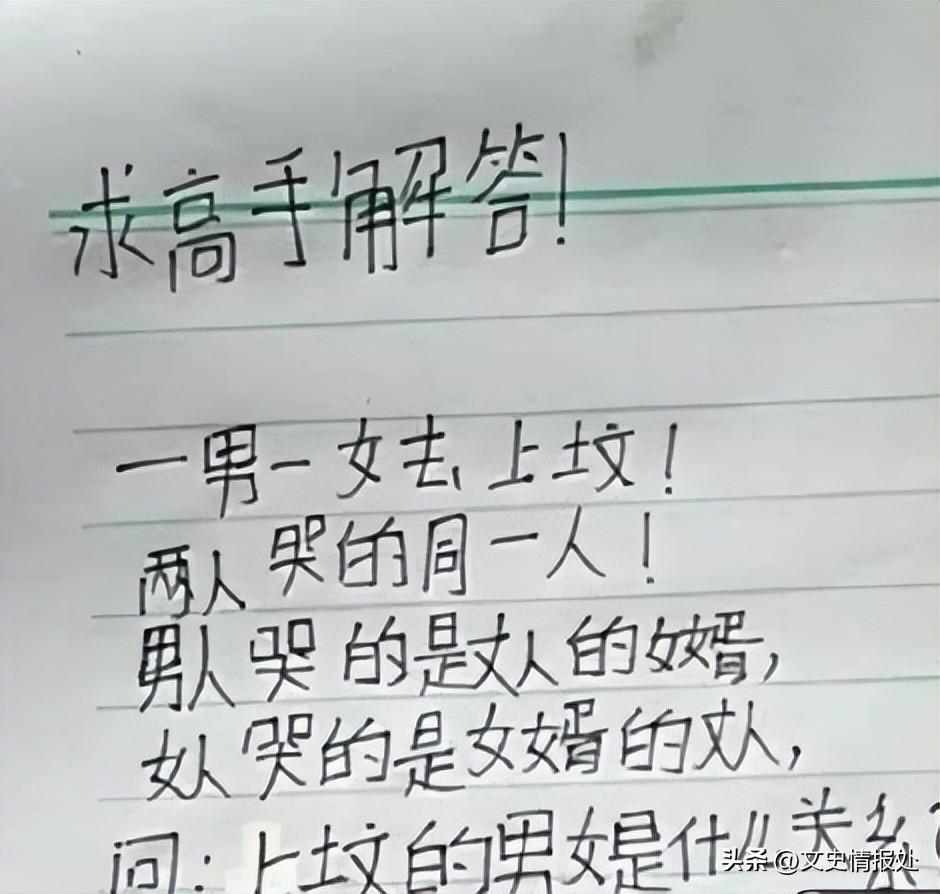 求高手解答!
一男一女去上坟!
两人哭的同一人!
男人哭的是丈人的女婿,
女人哭的是女婿的丈人,
问:上坟的男女是什么关系
头条 @文史情报处